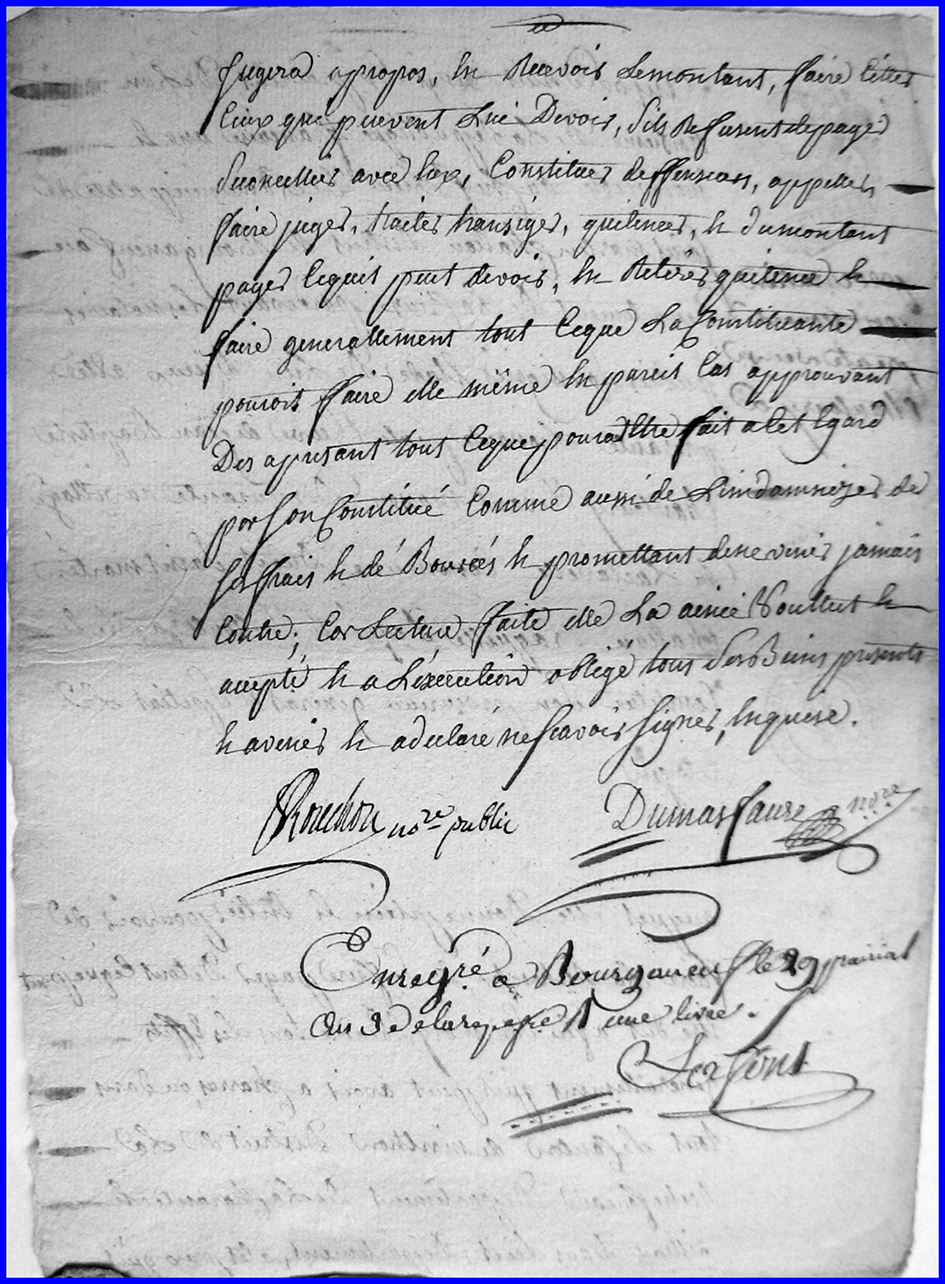 jugera apropos, En Recevoir Lemontant, faire Citter
Ceux qui peuvent Lui Devoir, Sils Refusent depayer
Seconcillier avec Eux, Constituer deffenseurs, appeller,
faire juger, traiter transiger, quitencer, & dumontant
payer Cequil peut devoir, En Retirer quitence &
faire generallement tout Ceque LaConstituante
pouroit faire elle même En pareil Cas approuvant
Des apresant tout Ceque poura Etre fait a Cet Egard
par Son Constitué Comme aussi de Lindamnizer de
Ses frais & dé Boursés & promettant dene venir jamais
Contre; Car Lecture faite elle La aincÿ Voullut &
accepté & a Léxécution obligé tous Ses Biens presents
& avenir & adeclaré ne Scavoir Signer, Enquise.
Rouchon nore public Dumasfaure nore
Enregré. a Bourganeuf le 29 prairial
an 3e de la rep. une livre.